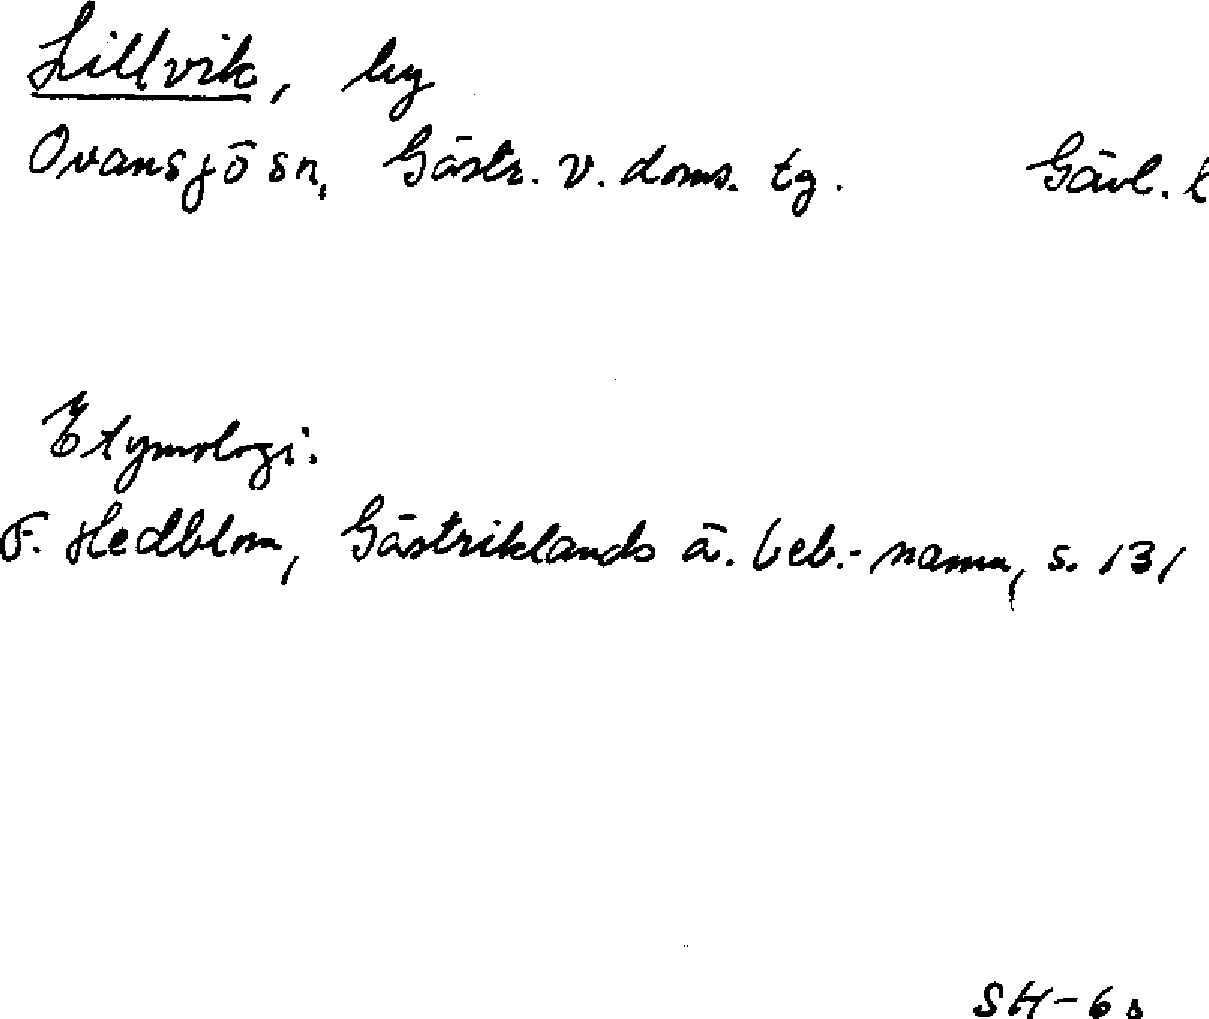 Lillvik, by
Ovansjö sn, Gästr. v. doms. tg. Gävl. l
Etymologi:
F. Hedblom, Gästriklands ä. beb.-namn, s. 131
SH-6